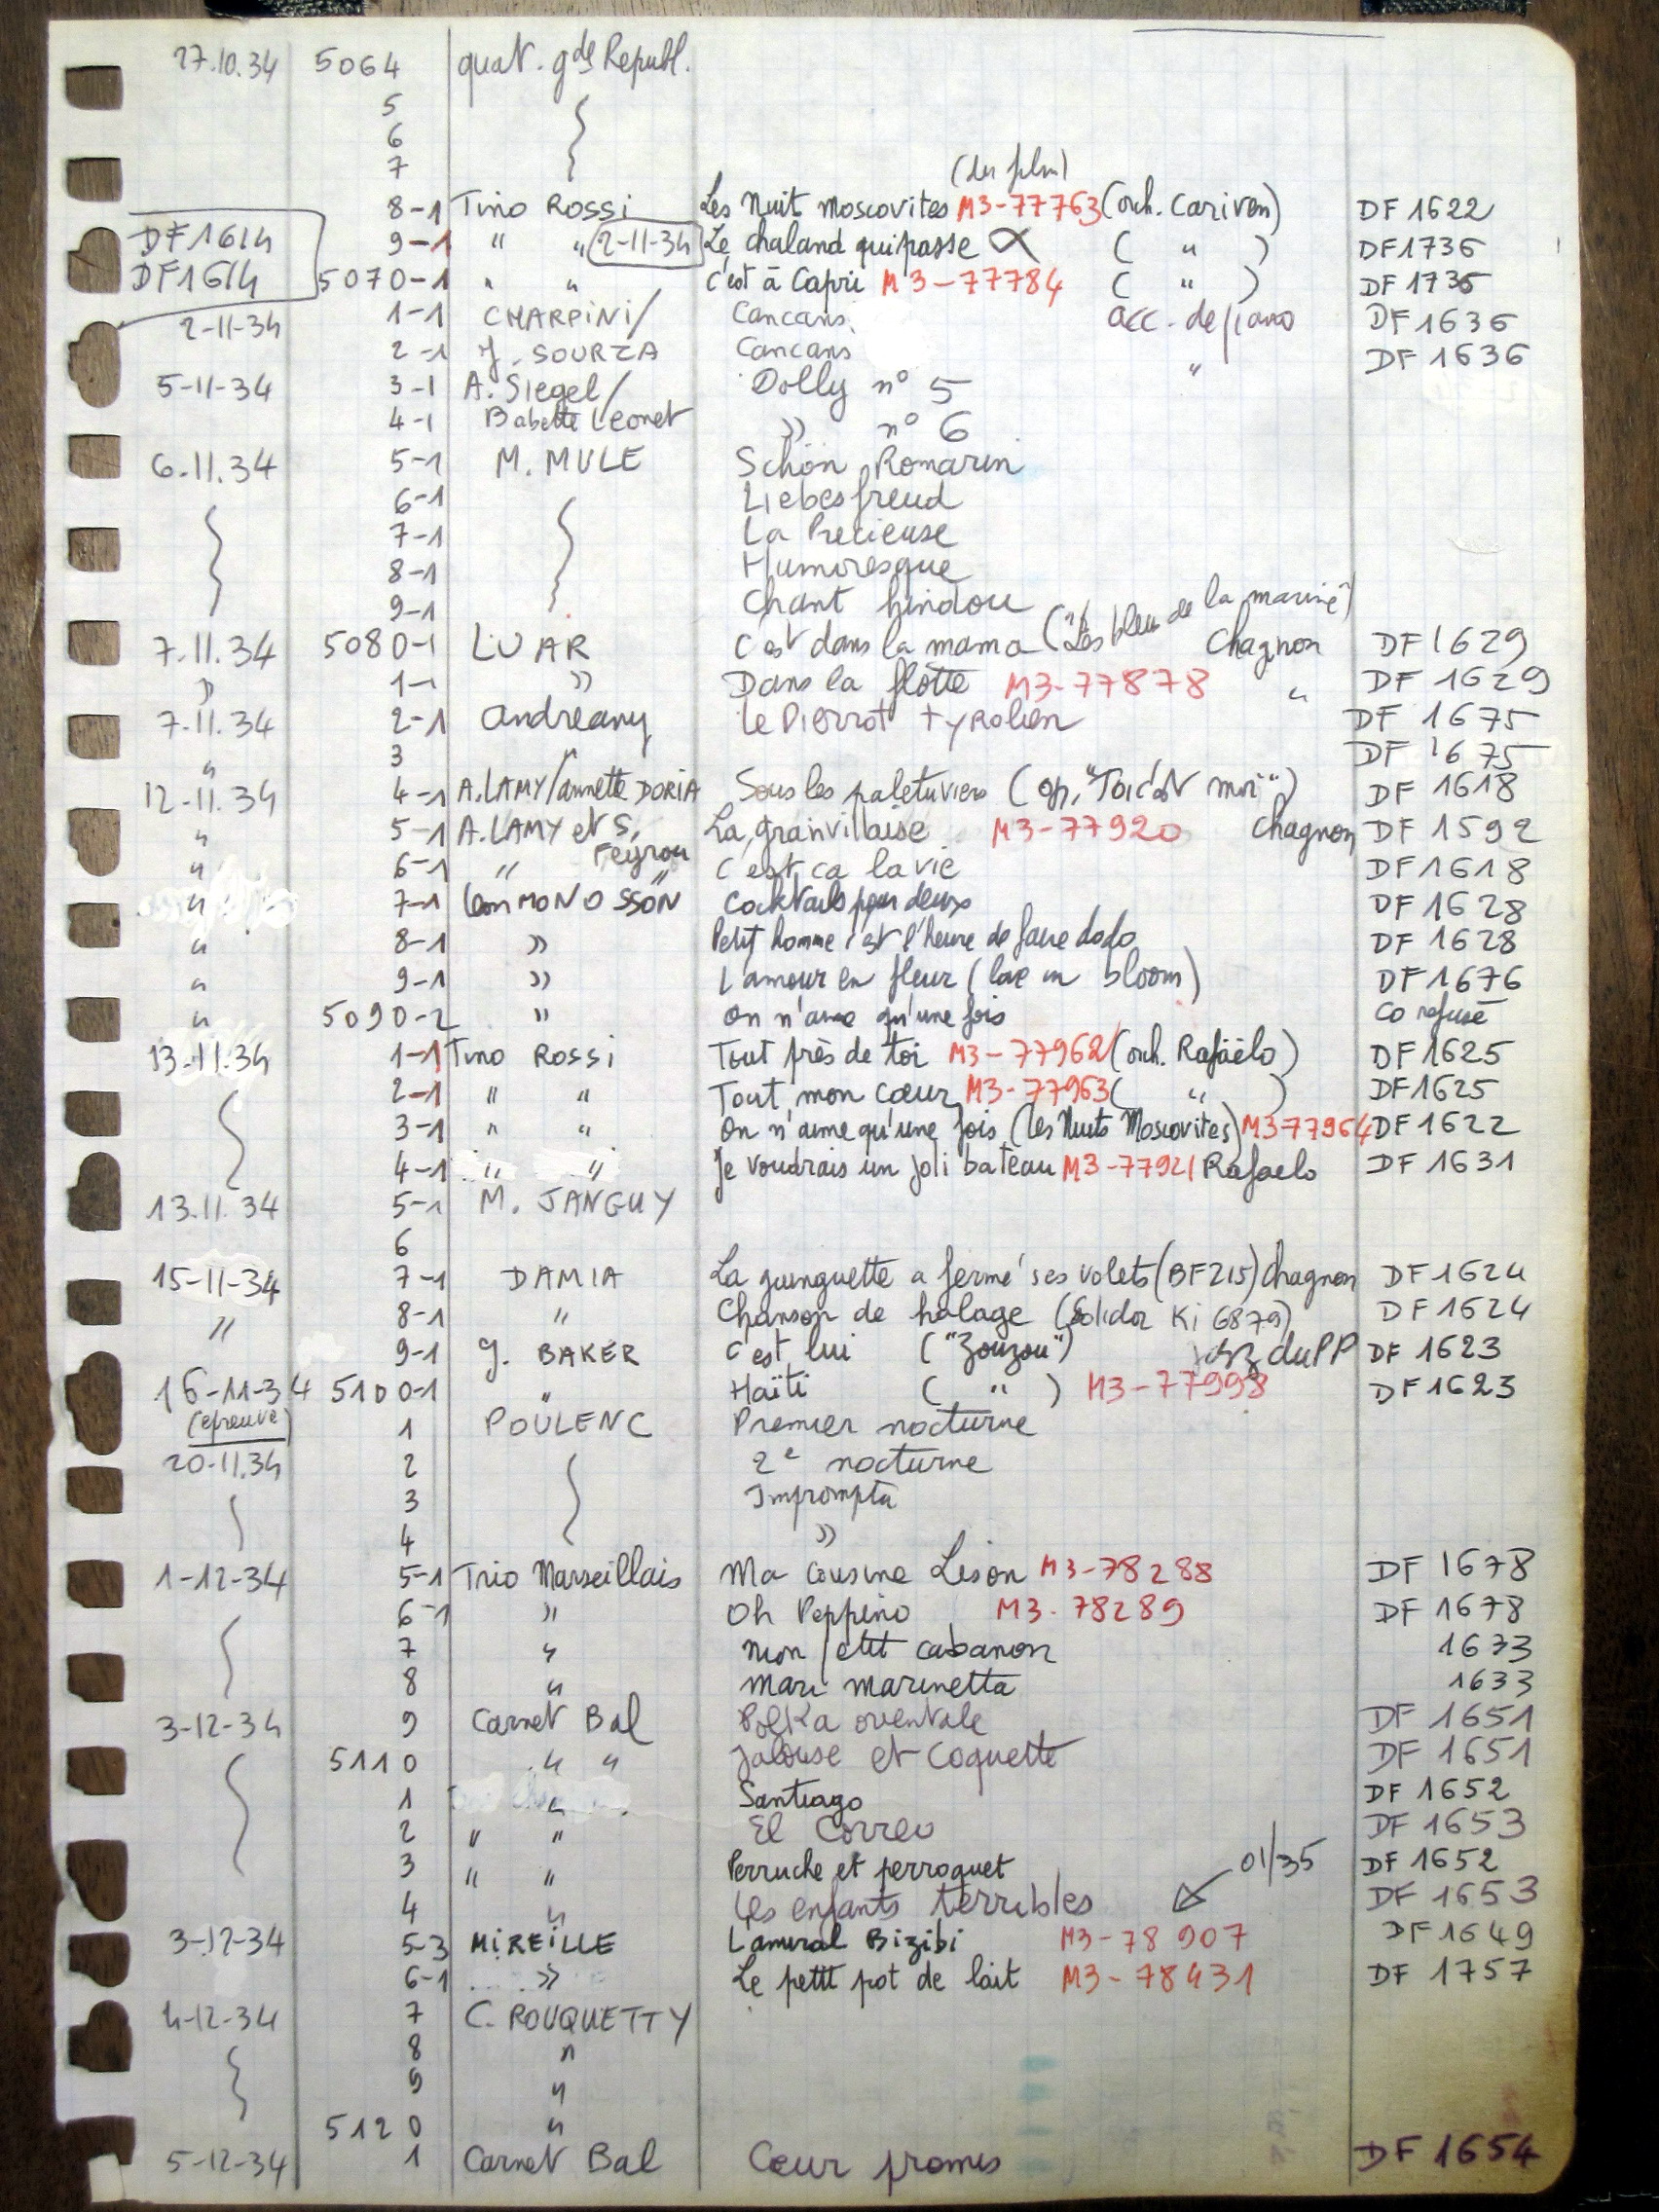 27.10.34 5064 quat. gde Republ.
5
6
7
(du film)
8-1 Tino Rossi Les Nuit Moscovites M3-77763 (orch. Cariven) DF 1622
DF1614 9-1 " " 2-11-34 Le chaland qui passe ( " ) DF1736
DF1614 5070-1 " " C'est à Capri M3-77784 ( " ) DF 1735
2-11-34 1-1 CHARPINI/ Cancans acc. de piano DF 1636
2-1 J. SOURZA Cancans " DF 1636
5-11-34 3-1 A. Siegel/ Dolly n° 5
4-1 Babette Leonet » n° 6
6.11.34 5-1 M. MULE Schön Romarin
6-1 Liebesfreud
7-1 La Precieuse
8-1 Humoresque
9-1 Chant hindou
7.11.34 5080-1 LUAR C'est dans la mama ("Les bleus de la marine") Chagnon DF 1629
» 1-1 » Dans la flotte M3-77878 " DF 1629
7.11.34 2-1 Andreany Le Pierrot tyrolien DF 1675
" 3 " DF 1675
12-11.34 4-1 A.LAMY/annette DORIA Sous les paletuviers (op. "Toi c'est moi") DF 1618
" 5-1 A.LAMY et S. Feyrou La granvillaise M3-77920 Chagnon DF 1592
" 6-1 " " C'est ca la vie DF 1618
" 7-1 Leon MONOSSON Cocktails pour deux DF 1628
" 8-1 » Petit homme c'est l'heure de faire dodo DF 1628
" 9-1 » L'amour en fleur (love in bloom) DF 1676
" 5090-2 » On n'aime qu'une fois Co refusé
13-11.34 1-1 Tino Rossi Tout près de toi M3-77962 (orch. Rafaëlo) DF 1625
2-1 " " Tout mon cœur M3-77963 ( " ) DF 1625
3-1 " " On n'aime qu'une fois (les Nuits Moscovites) M377964 DF 1622
4-1 " " Je voudrais un joli bateau M3-77921 Rafaelo DF 1631
13.11.34 5-1 M. JANGUY
6
15-11-34 7-1 DAMIA La guinguette a fermé ses volets (BF215) Chagnon DF 1624
" 8-1 " Chanson de halage (Solidor Ki 6879) DF 1624
9-1 J. BAKER C'est lui ("Zouzou") jazz du PP DF 1623
16-11-34 5100-1 " Haïti ( " ) M3-77998 DF 1623
(epreuve) 1 POULENC Premier nocturne
20-11.34 2 2e nocturne
3 Impromptu
4 »
1-12-34 5-1 Trio Marseillais Ma cousine Lison M3-78288 DF 1678
6-1 » Oh Peppino M3-78289 DF 1678
7 " mon petit cabanon 1633
8 " mari marinetta 1633
3-12-34 9 Carnet Bal Polka orientale DF 1651
5110 " " Jalouse et coquette DF 1651
1 " Santiago DF 1652
2 " " El Correo DF 1653
3 " " Perruche et perroquet 01/35 DF 1652
4 " Les enfants terribles DF 1653
3-12-34 5-3 MiREiLLE L'amiral Bizibi M3-78907 DF 1649
6-1 » Le petit pot de lait M3-78431 DF 1757
4-12-34 7 C. ROUQUETTY
8 "
9 "
5120 "
5-12-34 1 Carnet Bal Cœur promis DF 1654